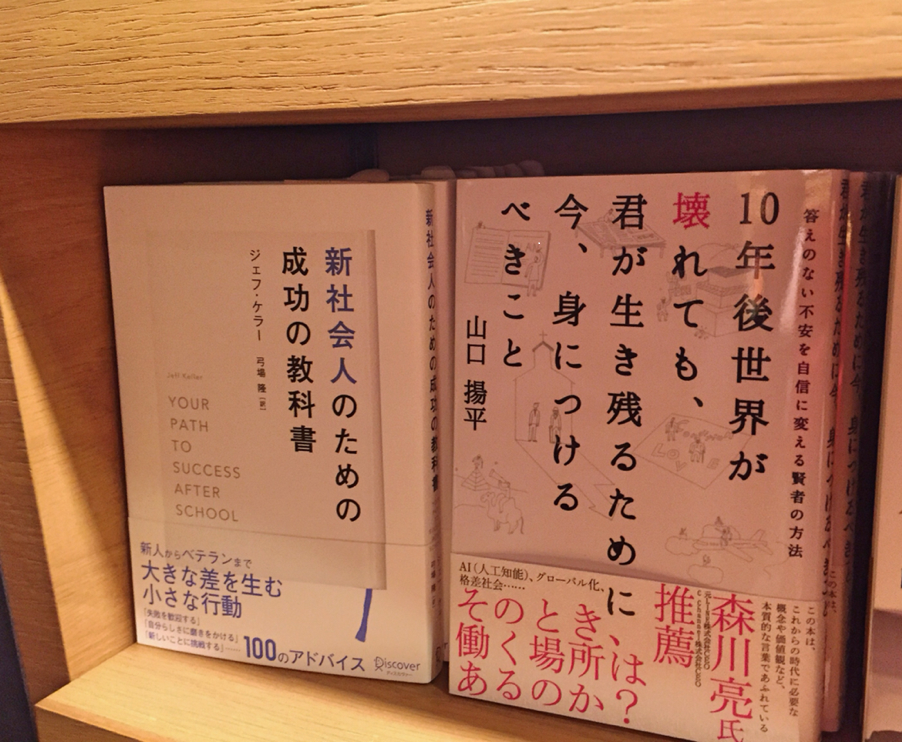 新社会人のための
成功の教科書
ジェフ・ケラー
弓場 隆[訳]
Jeff Keller
YOUR
PATH
TO
SUCCESS
AFTER
SCHOOL
新人からベテランまで
大きな差を生む
小さな行動
「失敗を歓迎する」
「自分らしさに磨きをかける」
「新しいことに挑戦する」
100のアドバイス
Discover
ディスカヴァー
新社会人のための成功の教科書
答えのない不安を自信に変える賢者の方法
10年後世界が
壊れても、
君が生き残るために
今、身につける
べきこと
山口 揚平
AI(人工知能)、グローバル化、
格差社会……
この本は、
これからの時代に必要な
概念や価値観など、
本質的な言葉であふれている
森川亮氏
元LINE株式会社CEO
C Channel株式会社CEO
推薦
は?
き所か
と場の
のくる
そ働あ